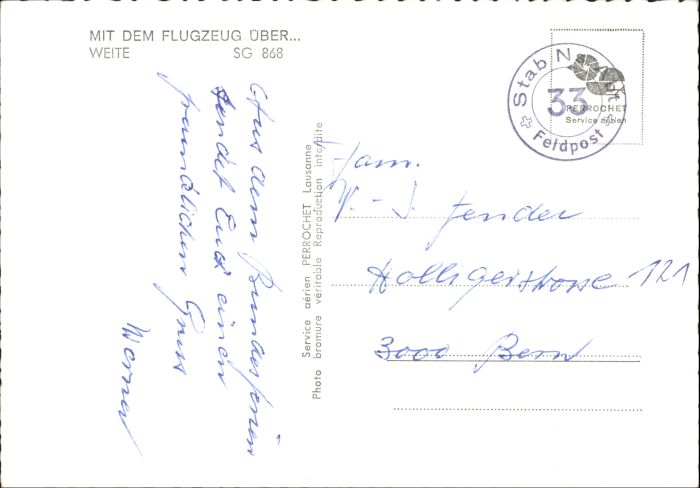 MIT DEM FLUGZEUG ÜBER...
WEITE SG 868
Aus dem Bundesferien
sendet Euch einen
freundlichen Gruss
Werner
Service aérien PERROCHET Lausanne
Photo bromure véritable Reproduction interdite
Stab Na
33
Feldpost
PERROCHET
Service aérien
Fam.
Fender
Holligerstrasse 121
3000 Bern